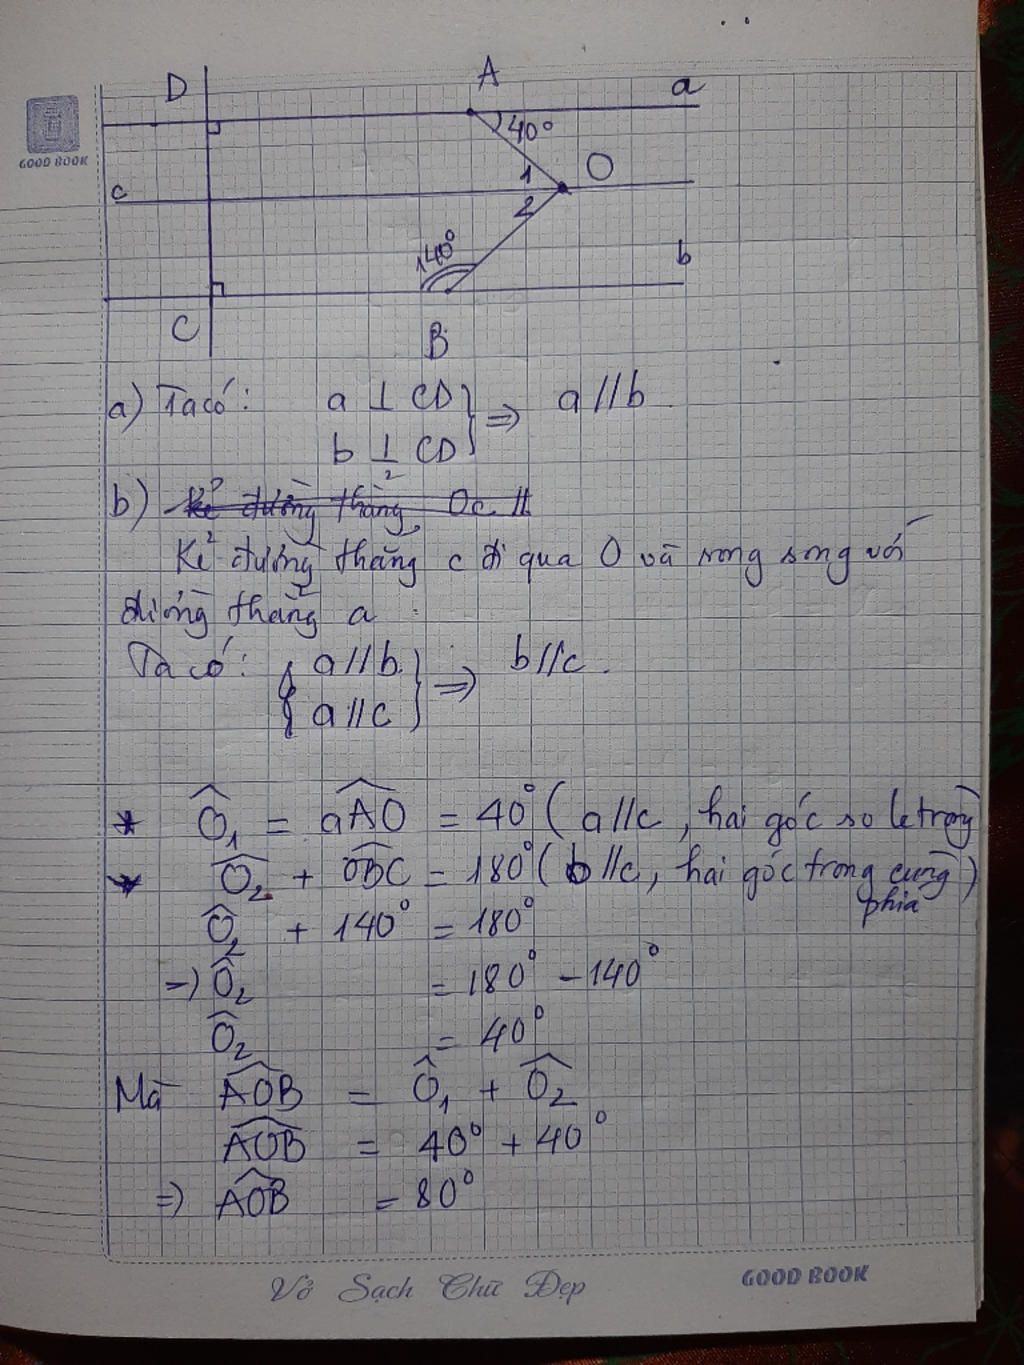 GOOD BOOK
D
A
a
40°
1
O
c
2
140°
b
C
B
a) Ta có: a ⊥ CD
b ⊥ CD } ⇒ a // b
b)
Kẻ đường thẳng c đi qua O và song song với
đường thẳng a
Ta có: { a // b
a // c } ⇒ b // c.
* Ô₁ = aÂO = 40° ( a // c , hai góc so le trong)
* Ô₂ + OB̂C = 180° ( b // c, hai góc trong cùng
phía )
Ô₂ + 140° = 180°
⇒) Ô₂ = 180° - 140°
Ô₂ = 40°
Mà AÔB = Ô₁ + Ô₂
AÔB = 40° + 40°
⇒) AÔB = 80°
Vở Sạch Chữ Đẹp
GOOD BOOK